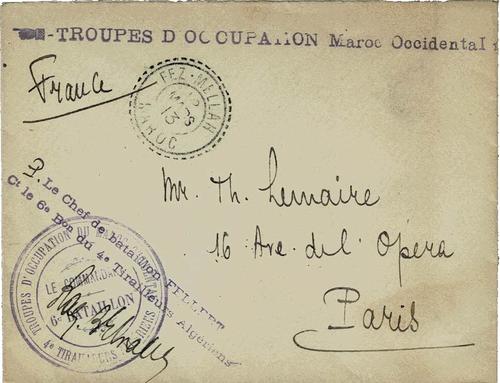 -TROUPES D'OCCUPATION Maroc Occidental
France
FEZ-MELLAH
MARS
13
MAROC
Mr. Th. Lemaire
16 Ave. de l'Opéra
Paris
P. Le Chef de bataillon FELLERT
Ct le 6e Bon du 4e Tirailleurs Algériens
TROUPES D'OCCUPATION DU
LE COMMANDANT
6e BATAILLON
4e TIRAILLEURS